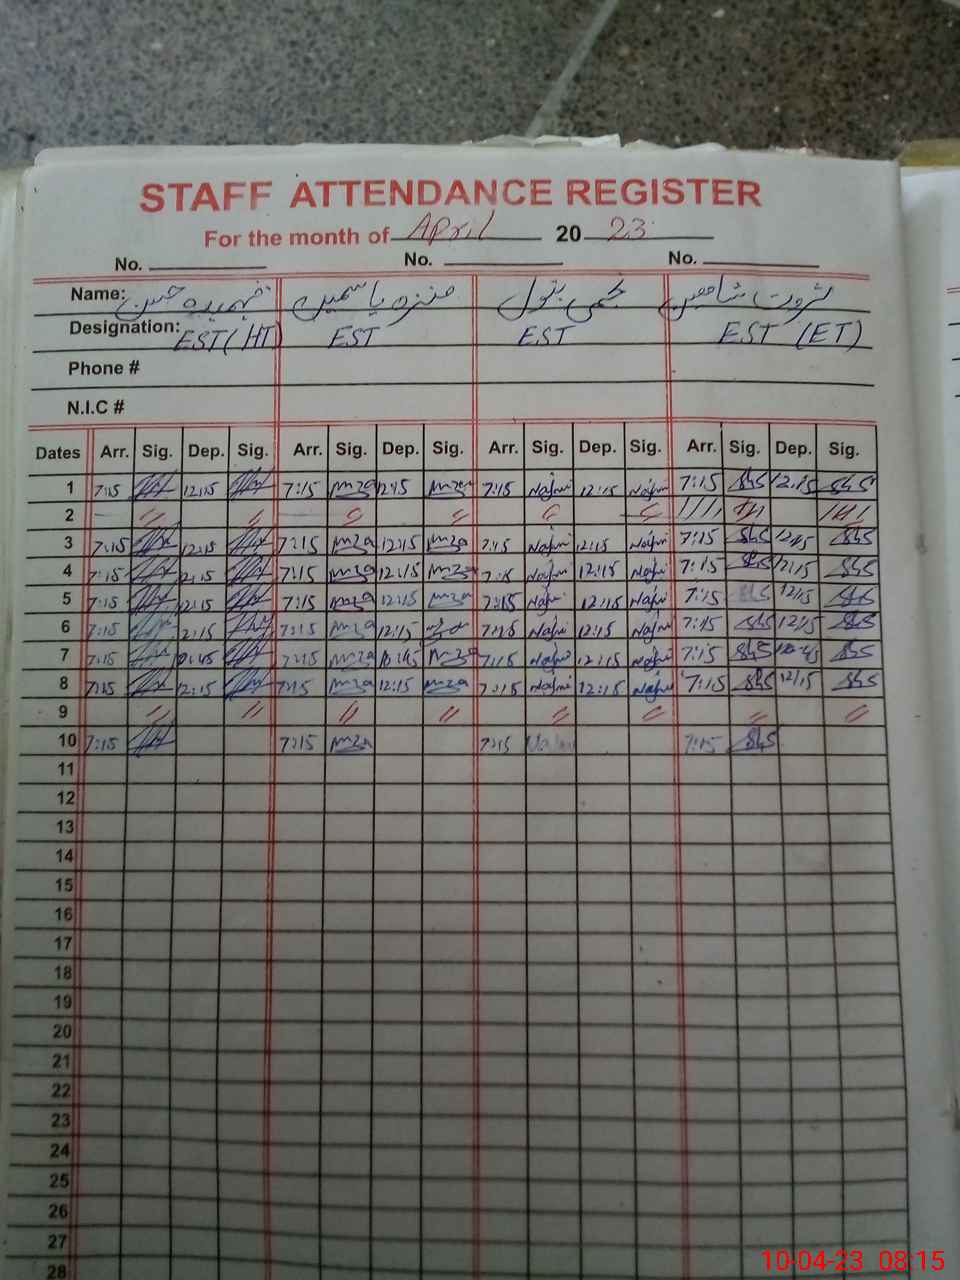 STAFF ATTENDANCE REGISTER
For the month of April 20 23
No. No. No.
Name: فہمیدہ حسن منزہ یاسمین نجمی بتول ثروت شاہین
Designation: EST(HT) EST EST EST (ET)
Phone #
N.I.C #
Dates Arr. Sig. Dep. Sig. Arr. Sig. Dep. Sig. Arr. Sig. Dep. Sig. Arr. Sig. Dep. Sig.
1 7:15 12:15 7:15 mza 12:15 mza 7:15 Najmi 12:15 Najmi 7:15 12:15
2 " " " " " "
3 7:15 12:15 7:15 mza 12:15 mza 7:15 Najmi 12:15 Najmi 7:15 12:15
4 7:15 12:15 7:15 mza 12:15 mza 7:15 Najmi 12:15 Najmi 7:15 12:15
5 7:15 12:15 7:15 mza 12:15 mza 7:15 Najmi 12:15 Najmi 7:15 12:15
6 7:15 12:15 7:15 mza 12:15 7:15 Najmi 12:15 Najmi 7:15 12:15
7 7:15 10:45 7:15 mza 10:45 mza 7:15 Najmi 12:15 Najmi 7:15 10:45
8 7:15 12:15 7:15 mza 12:15 mza 7:15 Najmi 12:15 Najmi 7:15 12:15
9 " " " " " " " "
10 7:15 7:15 mza 7:15 Najmi 7:15
11
12
13
14
15
16
17
18
19
20
21
22
23
24
25
26
27
28
10-04-23 08:15